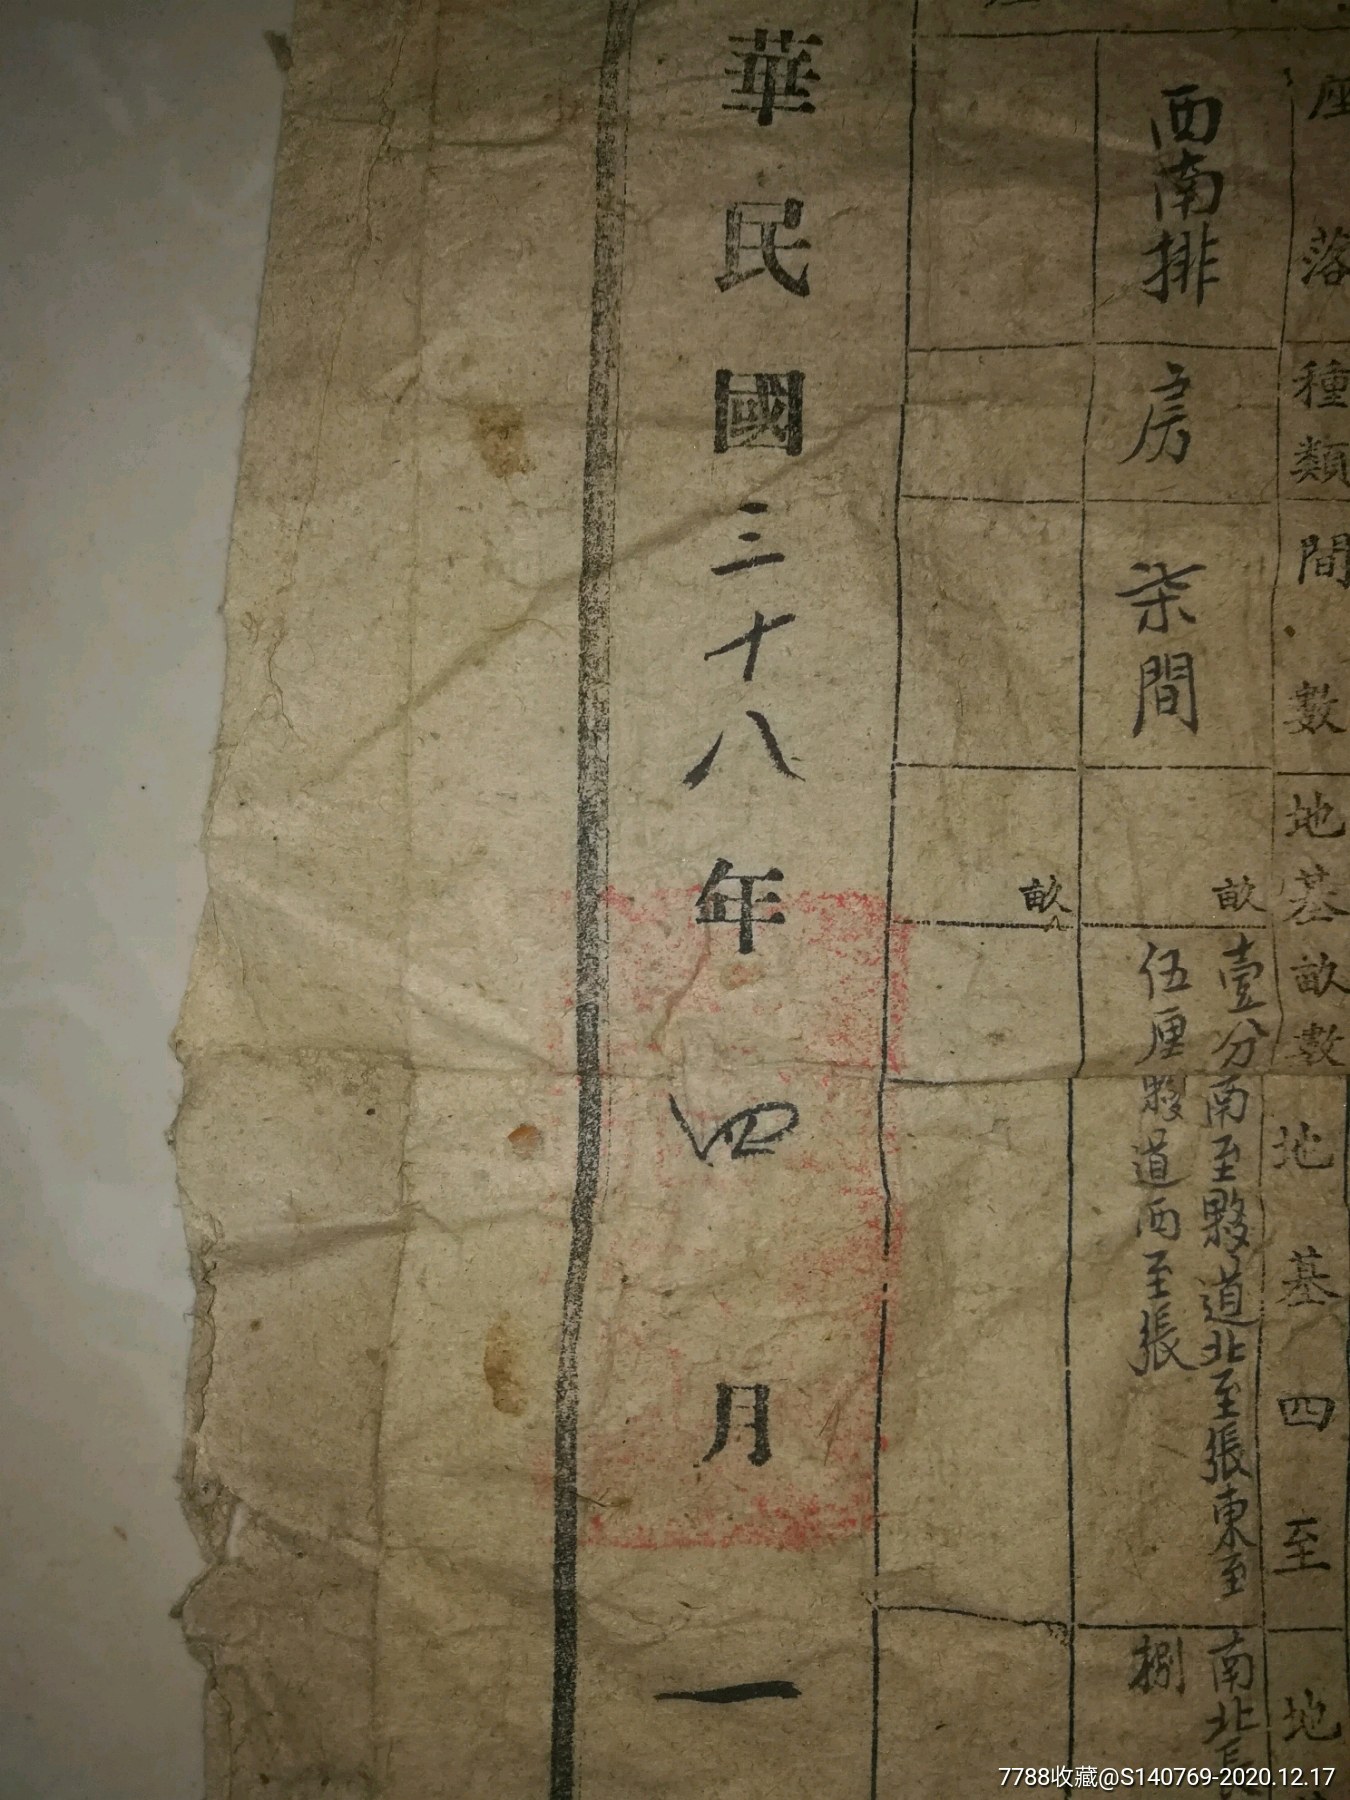 座落
種類
間數
地基畝數
地基四至
地
西南排
房
柒間
畝
壹分
伍厘
南至夥道北至張東至
夥道西至張
南北長
捌
畝
華民國三十八年四月一
7788收藏@S140769-2020.12.17